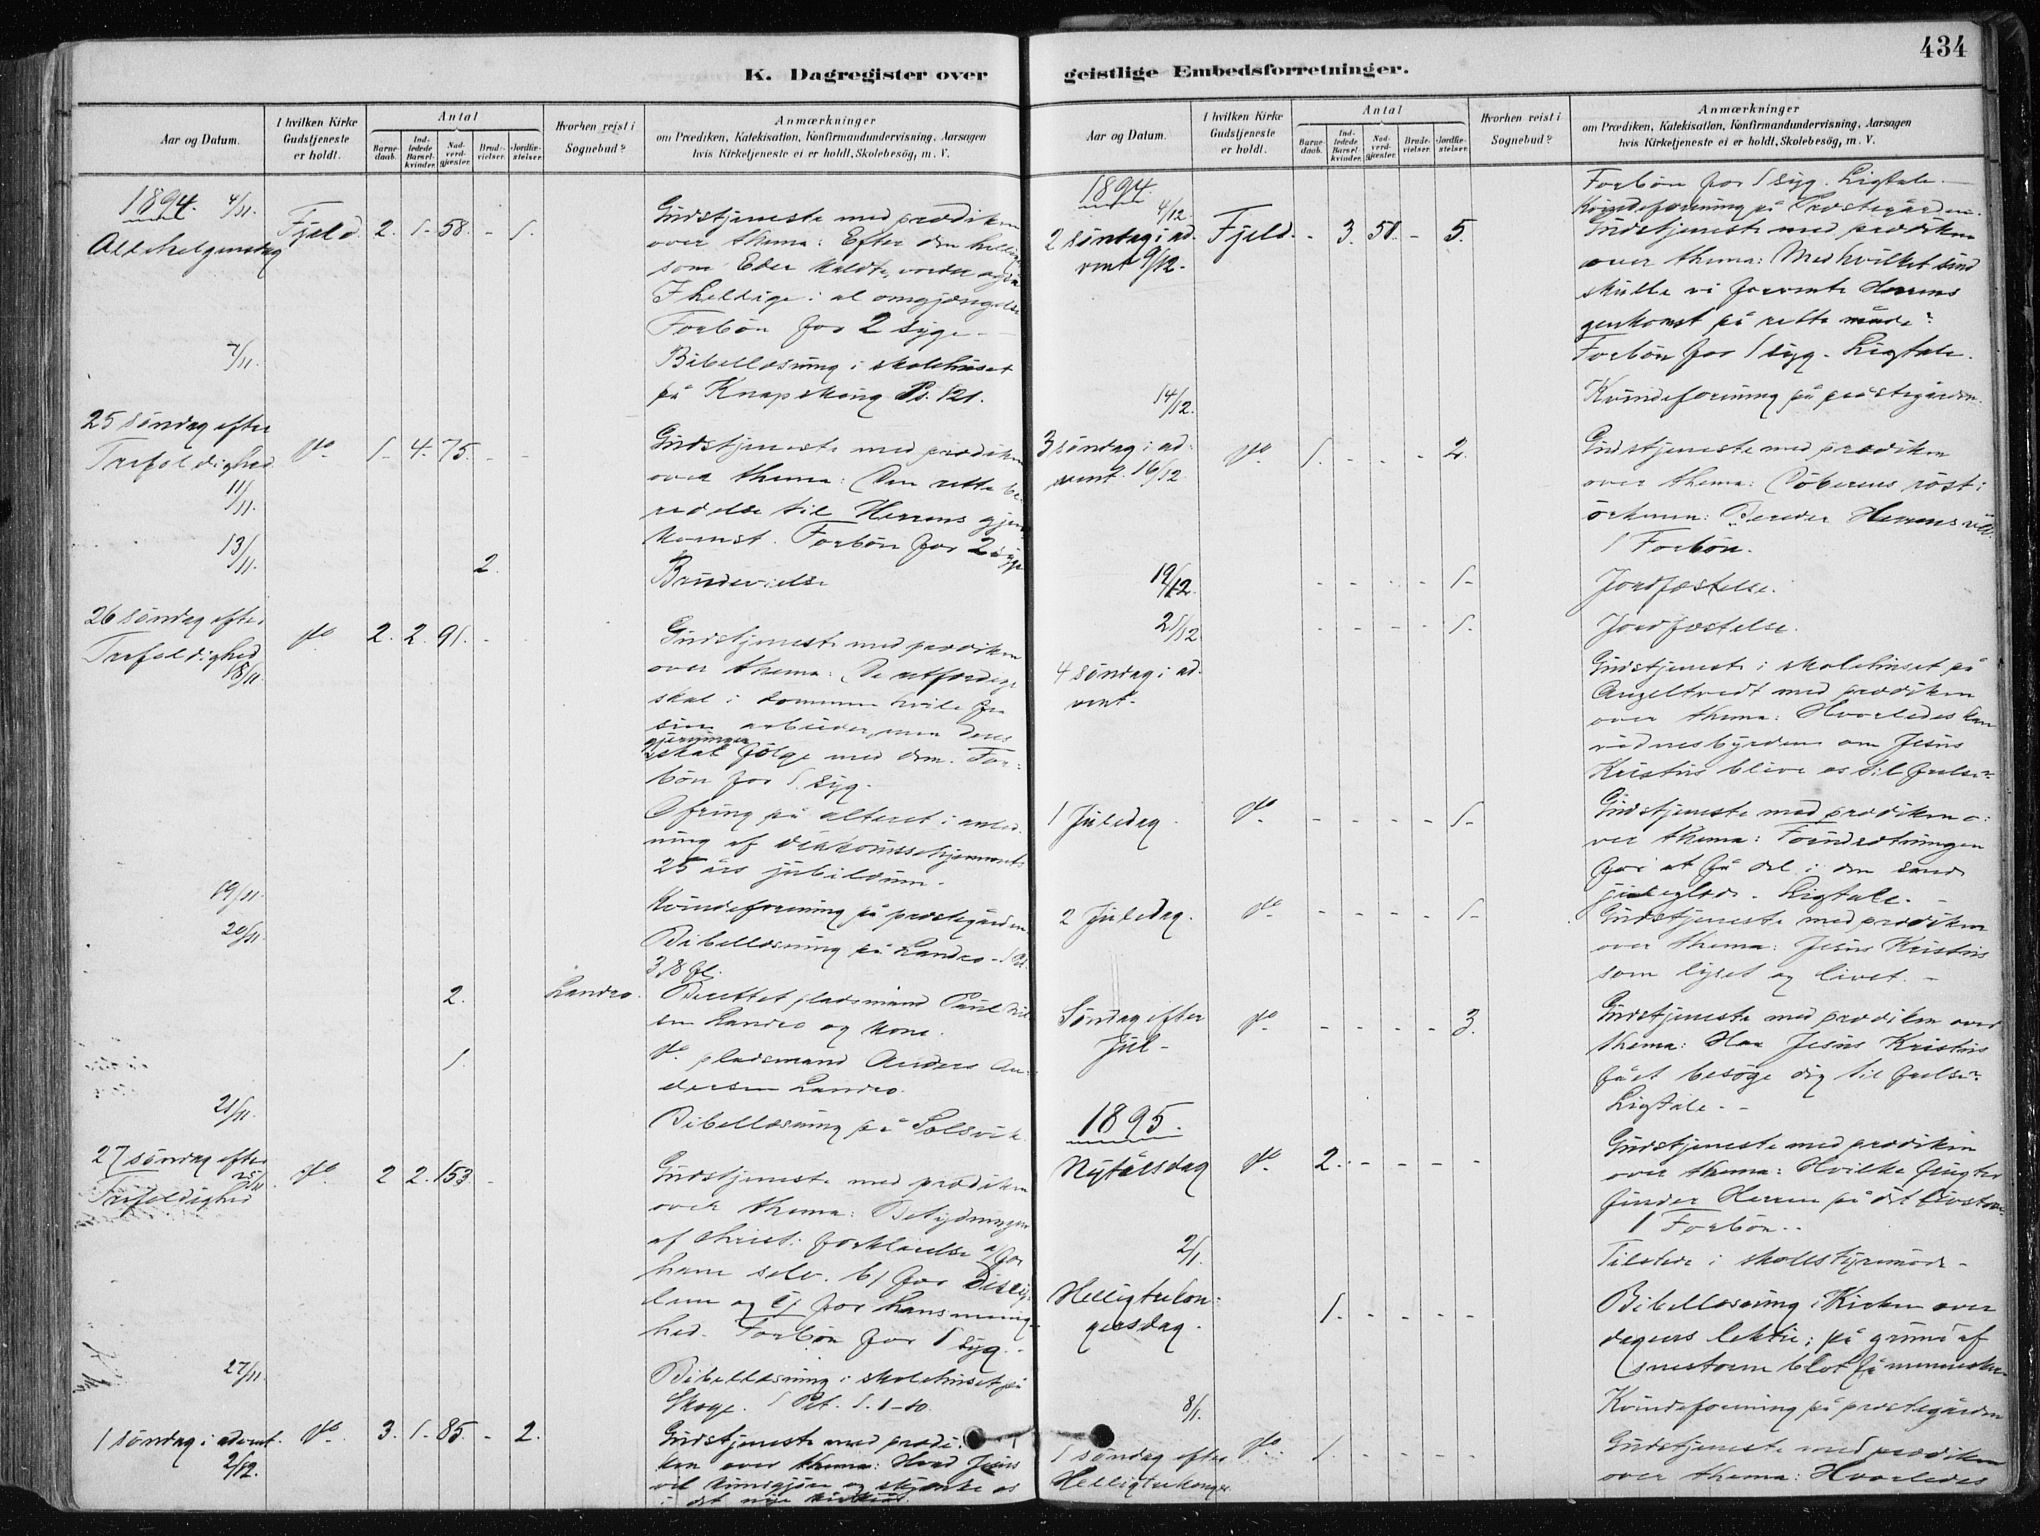 434
K. Dagregister over geistlige Embedsforretninger.
Aar og Datum.
I hvilken Kirke Gudstjeneste er holdt.
Antal
Barnedaab.
Indledede Barselkvinder.
Nadverdgjester.
Brudevielser.
Jordfæstelser.
Hvorhen rejst i Sognebud?
Anmærkninger
om Prædiken, Katekisation, Konfirmandundervisning, Aarsagen
hvis Kirketjeneste ei er holdt, Skolebesög, m. V.
1894. 4/11. Fjeld 2. 1. 58. - 1. Gudstjeneste med prædiken
Allehelgensdag over thema: Efter den hellige
som Eder kaldte, vorder også
I hellige i al omgjængelse
Forbön for 2 syge.
7/11. Bibellæsning i skolehuset
på Knapskong Ps. 121.
25 söndag efter
Trefoldighed do 1- 4. 75. - - Gudstjeneste med prædiken
11/11. over thema: Den rette be-
redelse til Herrens gjen-
komst. Forbön for 2 syge
13/11. 2. Brudevielse
26 söndag efter
Trefoldighed do 2. 2. 91. - Gudstjeneste med prædiken
18/11 over thema: De retfærdige
skal i domme hvile fra
sine arbeider, men deres
gjerninger
skal fölge med dem. For-
bön for 1 syg.
Ofring på alteret i anled-
ning af diakonissehjemmets
25 års jubilæum.
19/11. Kvindeforening på præstegården.
20/11. Bibellæsning på Landro - 1 Pet.
3,8 fl.
2. Landro. Berettet pladsmand Paul
sen Landro og kone.
1. do pladsmand Anders An-
dersen Landro.
21/11. Bibellæsning på Solsvik
27 söndag efter
25/11
Trefoldighed do 2 2. 153. - Gudstjeneste med prædiken
over thema: Betydningen
af Christi forklarelse a/ for
ham selv. b/ for Discip-
lene og c/ for hans menig-
hed. Forbön for 1 syg.
27/11. Bibellæsning i skolehuset på
Skoge. 1 Pet. 1. 1-10.
1 söndag i advent. do 3. 1- 85. - 2. Gudstjeneste med prædi-
2/12. ken over thema: Hvad Jesus
vil kundgjöre og skjænke os
i det nye kirkeår.
Aar og Datum.
I hvilken Kirke Gudstjeneste er holdt.
Antal
Barnedaab.
Indledede Barselkvinder.
Nadverdgjester.
Brudevielser.
Jordfæstelser.
Hvorhen reist i Sognebud?
Anmærkninger
om Prædiken, Katekisation, Konfirmandundervisning, Aarsagen
hvis Kirketjeneste ei er holdt, Skolebesög, m. V.
1894. Forbön for 1 syg. Ligtale.
4/12. Kvindeforening på Præstegården.
2 söndag i ad- Fjeld. - 3. 51. - 5. Gudstjeneste med prædiken
vent 9/12. over thema: Med hvilket sind
skulle vi forvente Herrens
genkomst på rette måde?
Forbön for 1 syg. Ligtale.
14/12. Kvindeforening på præstegården.
3 söndag i ad- do 1. - - - 2. Gudstjeneste med prædiken
vent. 16/12 over thema: Döberens röst i
örkenen: Bereder Herrens vei.
1 Forbön.
19/12. - - - - 1- Jordfæstelse.
21/12 - - - - 1. Jordfæstelse.
4 söndag i ad- Gudstjeneste i skolehuset på
vent. Angeltvedt med prædiken
over thema: Hvorledes kan
vidnesbyrdene om Jesus
Kristus blive os til frelse?
1 Juledag. do - - - - 1- Gudstjeneste med prædiken o-
ver thema: Forudsætningen
for at få del i den sande
juleglæde. Ligtale.
2 Juledag. do - - - - 1- Gudstjeneste med prædiken
over thema: Jesus Kristus
som lyset og livet. -
Söndag efter do - - - - 3. Gudstjeneste med prædiken over
Jul - thema: Har Jesus Kristus
fået besöge dig til frelse?
Ligtale. -
1895.
Nytårsdag do 2. - - - - Gudstjeneste med prædiken
over thema: Hvilke frugter
finder Herren på dit livstræ.
1 Forbön.
2/1. Tilstede i skolestyremöde -
Helligtrekon- 1. - - - - Bibellæsning i Kirken over
gersdag. dagens lektie; på grund af
snestorm blot få mennesker.
8/1. Kvindeforening på præstegården
1 söndag efter do 1. - - - - Gudstjeneste med prædiken
Helligtrekonger over thema: Hvorledes